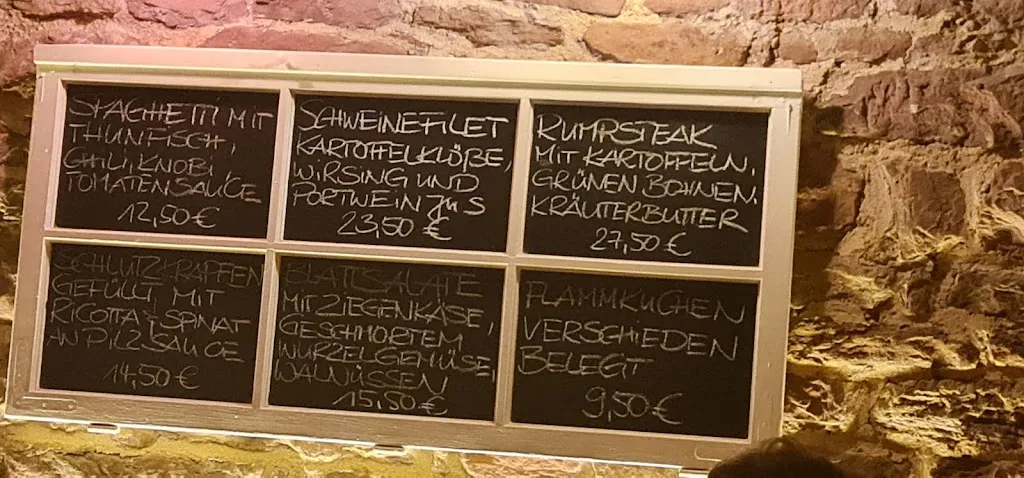 SPAGHETTI MIT
THUNFISCH,
CHILI, KNOBI,
TOMATENSAUCE
12,50€
SCHWEINEFILET
KARTOFFELKLÖßE,
WIRSING UND
PORTWEIN JUS
23,50 €
RUMPSTEAK
MIT KARTOFFELN,
GRÜNEN BOHNEN,
KRÄUTERBUTTER
27,50 €
SCHLUTZKRAPFEN
GEFÜLLT MIT
RICOTTA + SPINAT
AN PILZSAUCE
14,50 €
BLATTSALATE
MIT ZIEGENKÄSE,
GESCHMORTEM
WURZELGEMÜSE,
WALNÜSSEN
15,50€
FLAMMKUCHEN
VERSCHIEDEN
BELEGT
9,50€